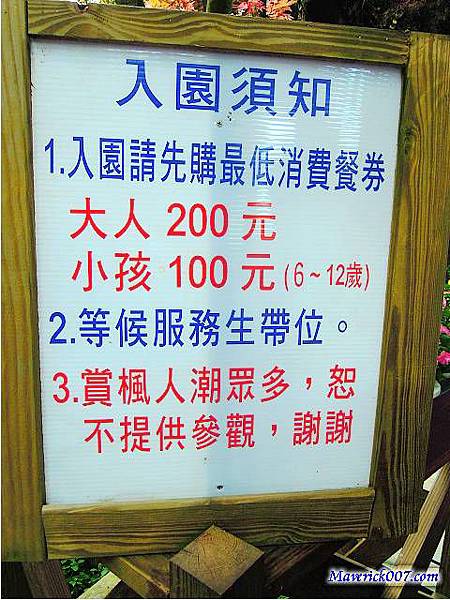 入園須知
1.入園請先購最低消費餐券
大人 200 元
小孩 100 元 (6~12歲)
2.等候服務生帶位。
3.賞楓人潮眾多，恕
不提供參觀，謝謝
Maverick007.com